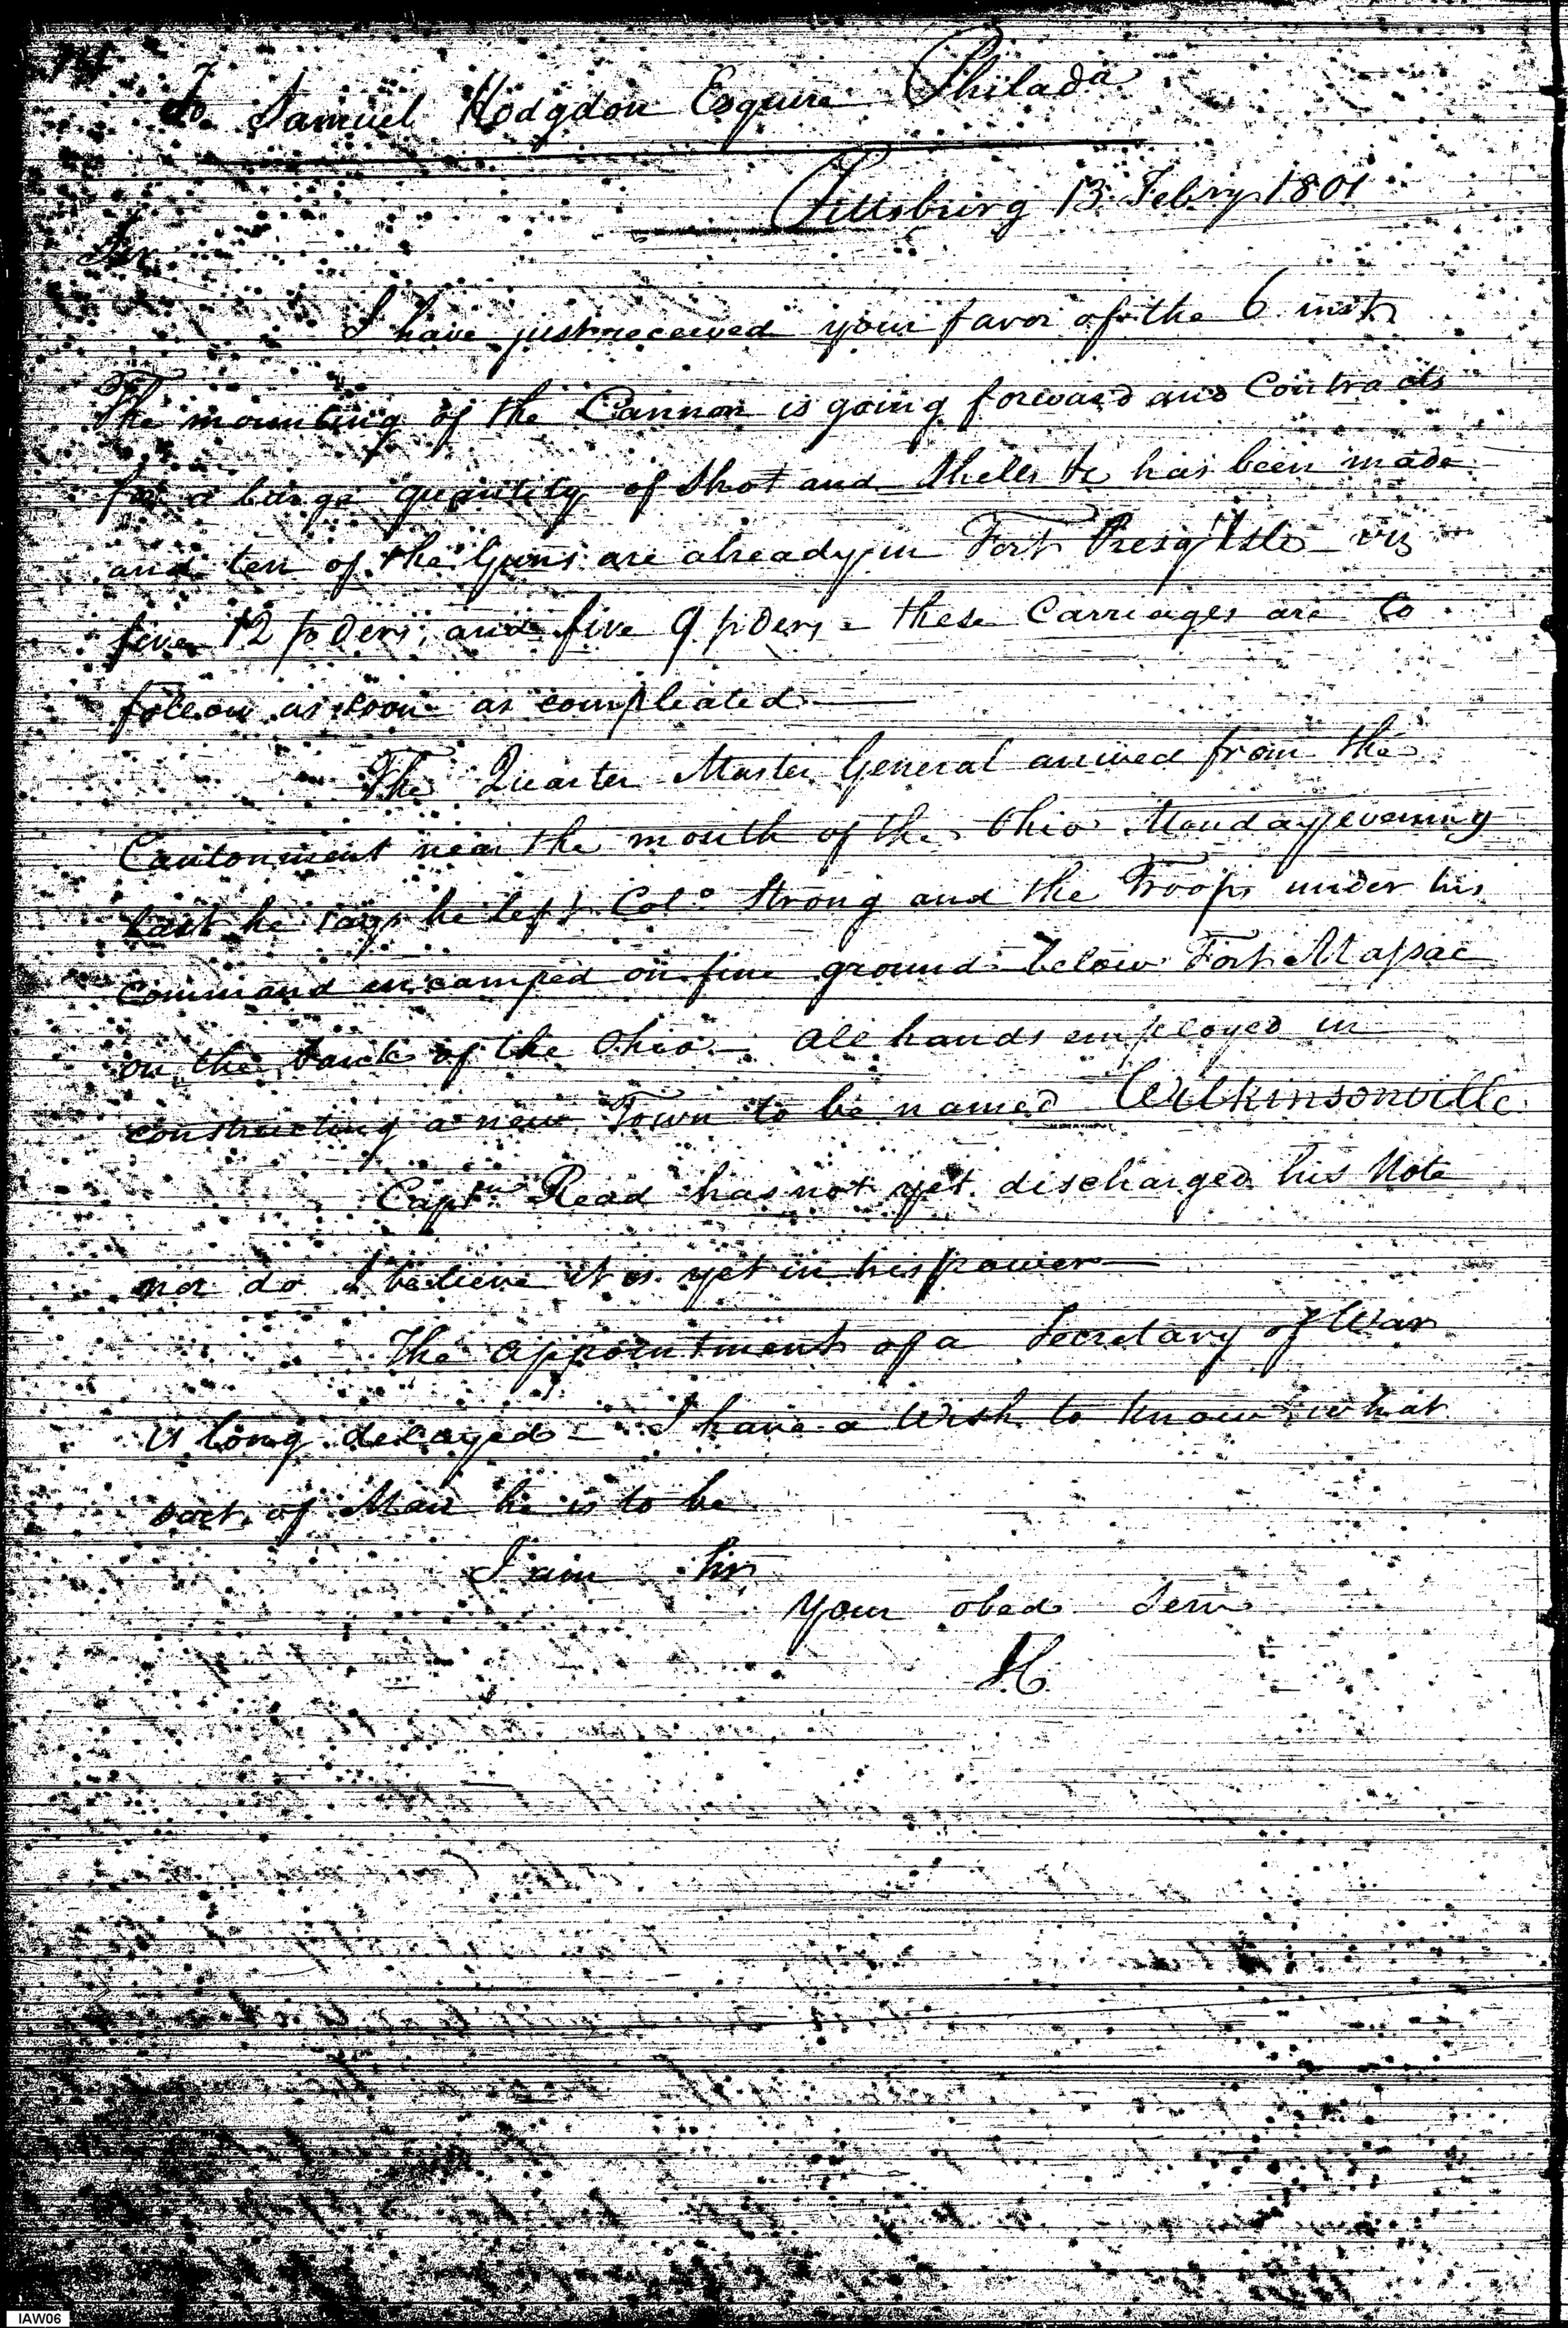 To Samuel Hodgdon Esquire Philada
Pittsburg 13 Febry 1801
Sir
I have just received your favor of the 6 inst
The mounting of the Cannon is going forward and Contracts
for a large quantity of Shot and Shells &c has been made
and ten of the Guns are already in Fort Presq'Isle - viz
five 12 pders, and five 9 pders - these Carriages are to
follow as soon as compleated
The Quarter Master General arrived from the
Cantonment near the mouth of the Ohio Monday evening
last he says he left Colo Strong and the Troops under his
command encamped on fine ground below Fort Massac
on the bank of the Ohio - all hands employed in
constructing a new Town to be named Wilkinsonville
Captn Read has not yet discharged his Note
nor do I believe it is yet in his power
The appointment of a Secretary of War
is long delayed - I have a wish to know what
sort of Man he is to be
I am Sir
Your obed Serv
IAW06